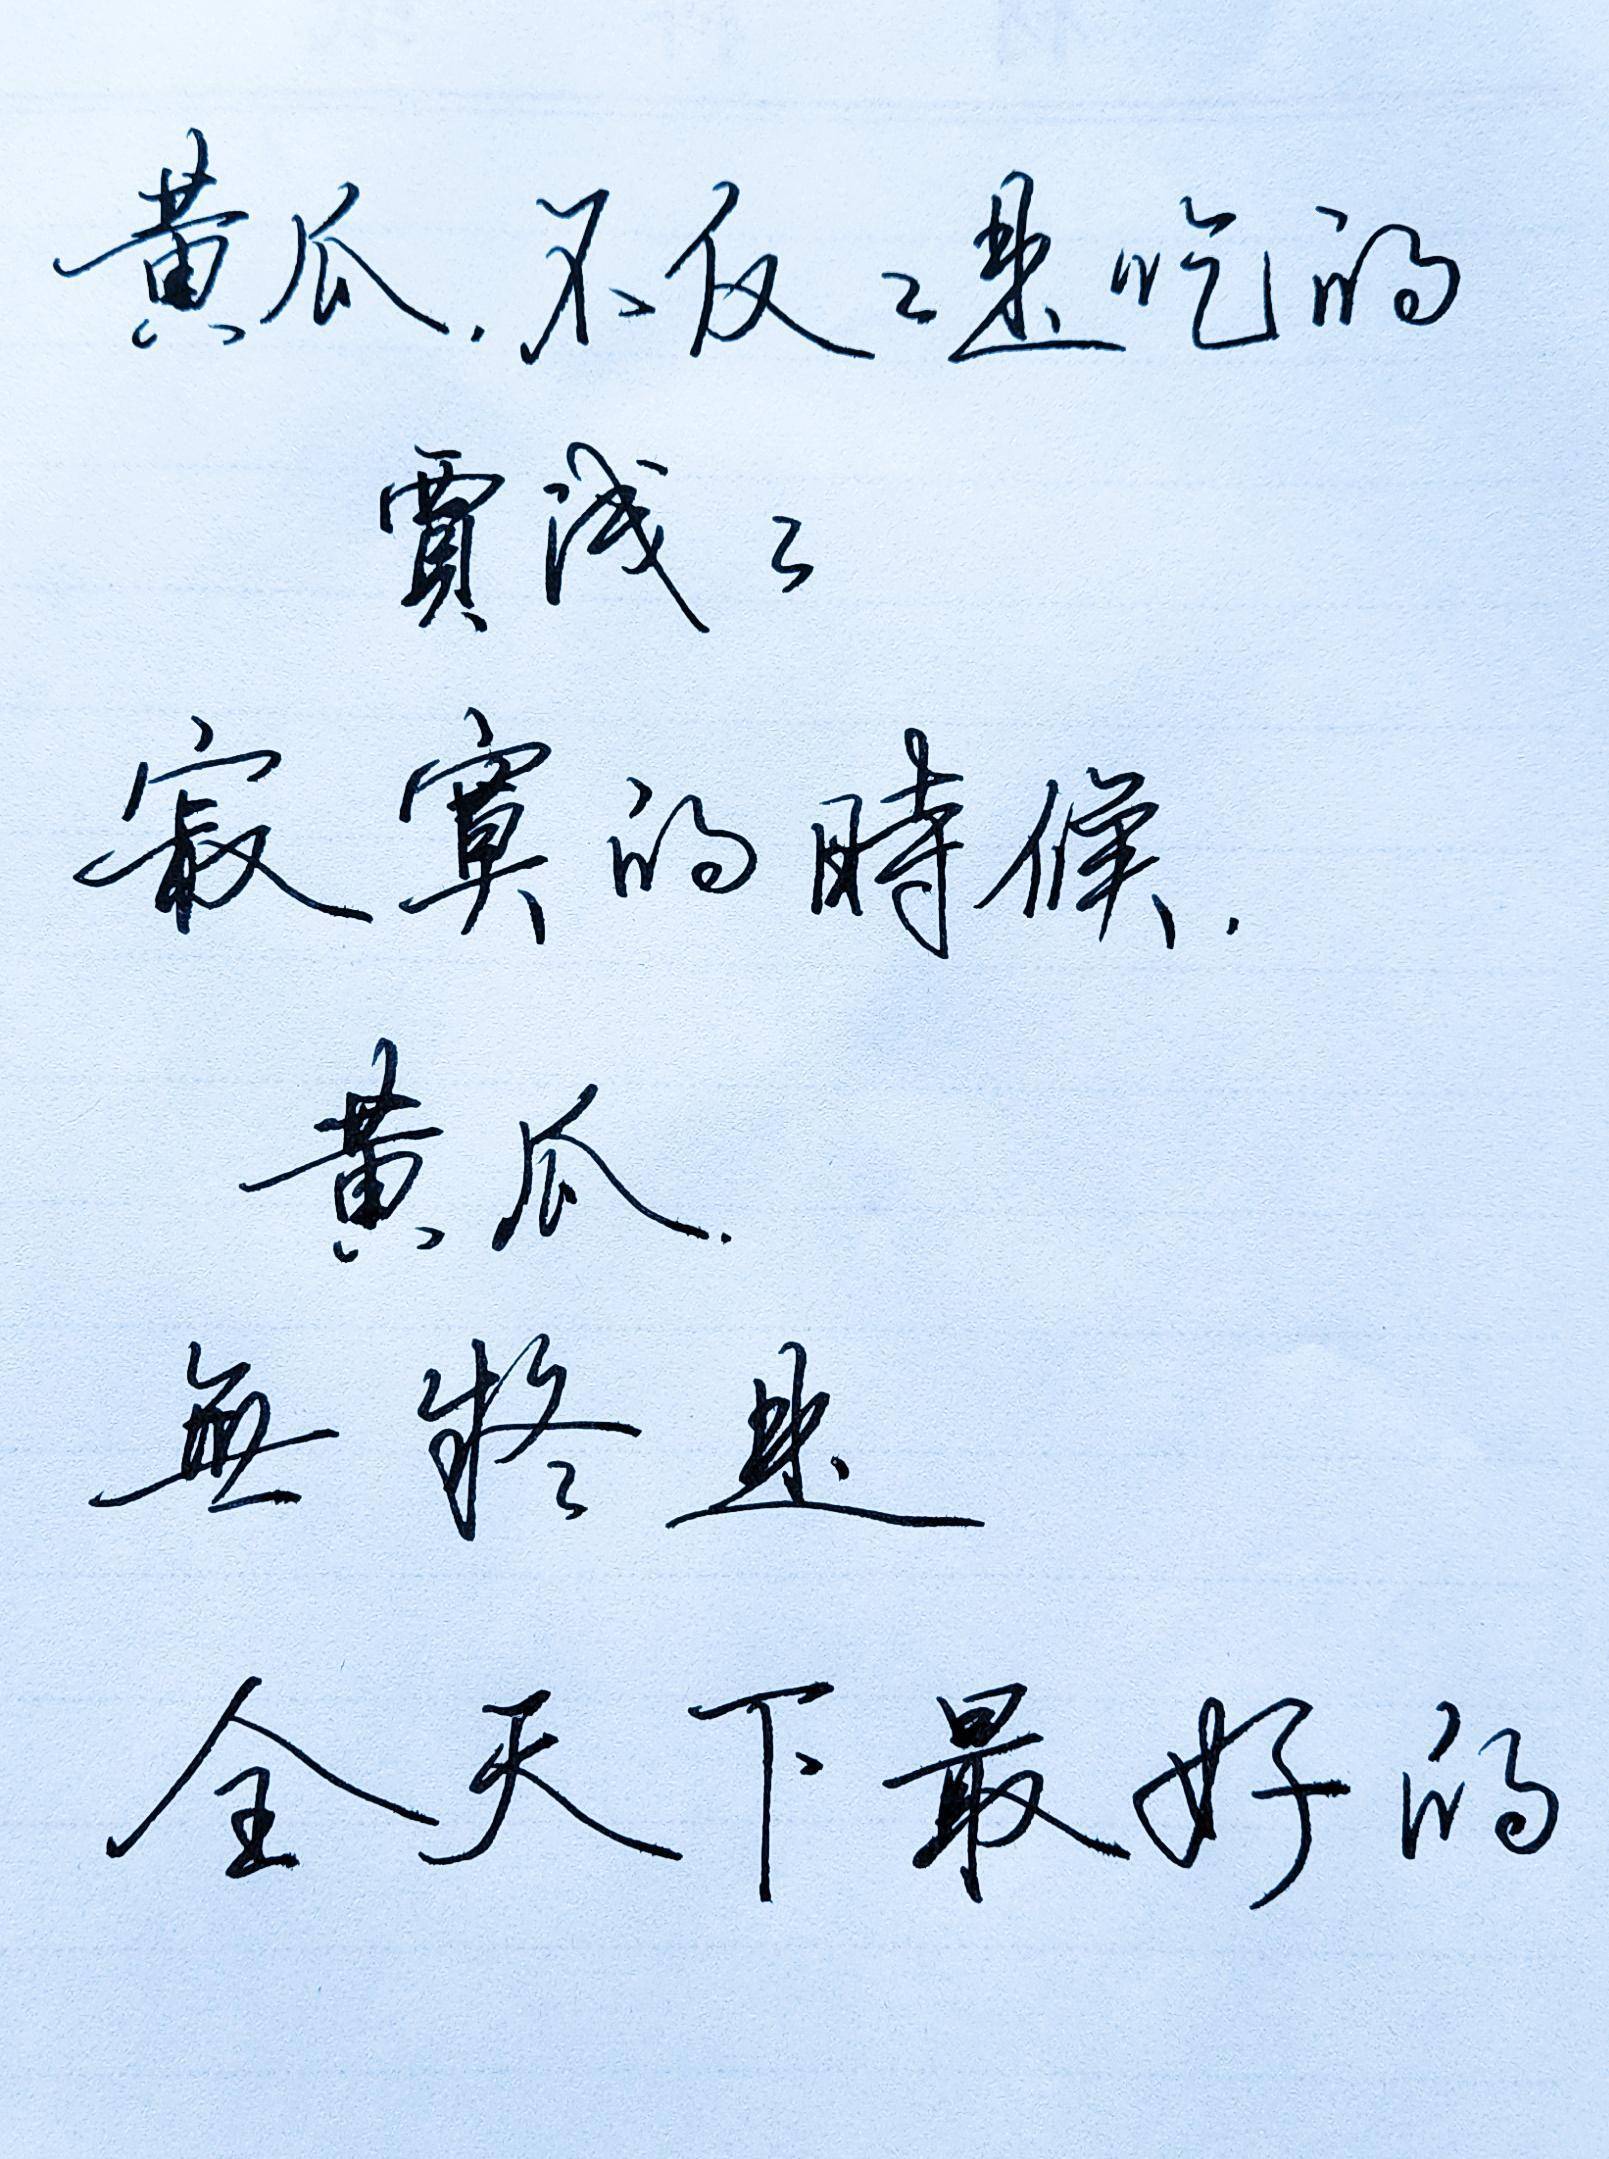 黄瓜，不仅仅是吃的
賈浅浅
寂寞的時候，
黄瓜，
無疑是
全天下最好的